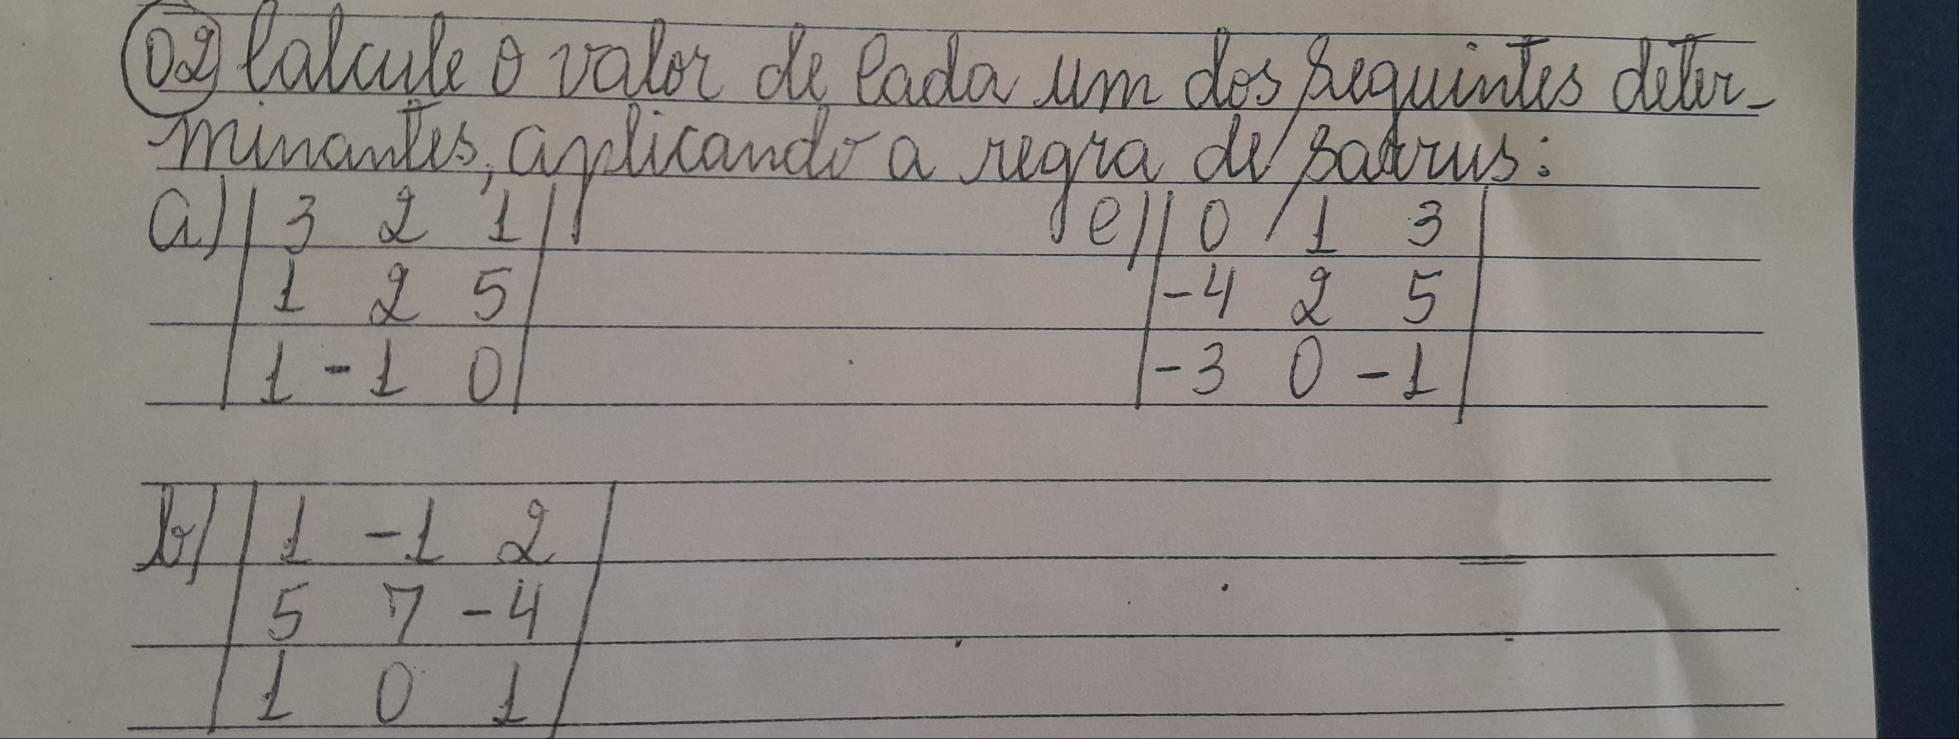 02 Calcule o valor de cada um dos seguintes deter-
minantes, aplicando a regra de Sarrus:
a) | 3 2 1 |
| 1 2 5 |
| 1 -1 0 |
e) | 0 1 3 |
| -4 2 5 |
| -3 0 -1 |
b) | 1 -1 2 |
| 5 7 -4 |
| 1 0 1 |